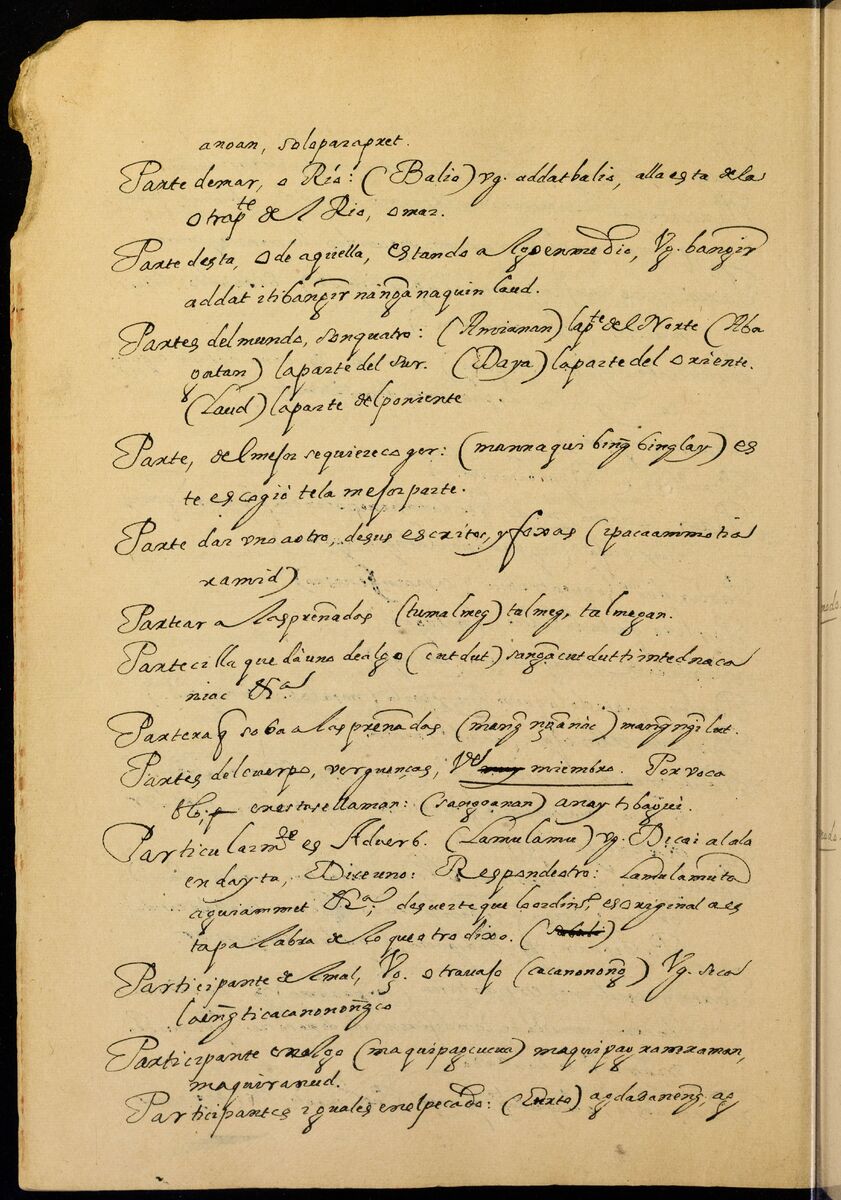 anoan, solo para pret.
Parte de mar, o Río: (Balio) vg. addat balio, alla esta de la
otra pte del Rio, o mar.
Parte desta, o de aqüella, estando algo en medio, Vg. bangir̃
addat iti bangir̃ nangãna quin laud.
Partes del mundo, son quatro: (Amianan) la pte del Norte (Aba
gatan) la parte del sur. (Daya) la parte del oriente.
(Laud) la parte del poniente
Parte, de lmejor se quiere coger: (mannaqui bing̃ binglay) es
te escogiò te la mejor parte.
Parte dar uno a otro, de sus escritos, y foxas (ipacaammotia
ramid)
Partear a las preñadas (tumalmeg) talmeg, talmegan.
Partecilla que da uno de algo (cutdut) sangãcutdut ti intednaca
niac &a
Partera q̃ soba a las preñadas (mang̃)
Partes del cuerpo, verguenças, Vel miembro. Por voca
en estas se llaman: (sangoanan) anaytibagui.
Particularmte es Adverb. (Lamulamu) vg. Dicai alala
en dayta, Dixe uno: Responde otro: Lamulamu ta
aguiammet &a; de suerte que lo ordins. es original a es
ta palabra de lo que otro dixo.
Participante de lmal, Vg. o travajo (cacanonong̃) Vg. sica
laeng̃ ti cacanonong̃co
Participante en algo (maquipagcucua) maquipag ramraman,
maquiranud.
Participantes iguales en el pecado: agdadaneng̃, ag